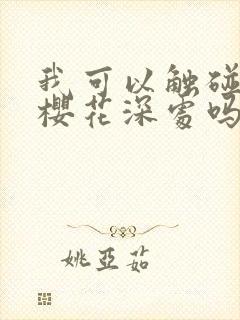 我可以触碰
樱花深处吗
姚亚茹